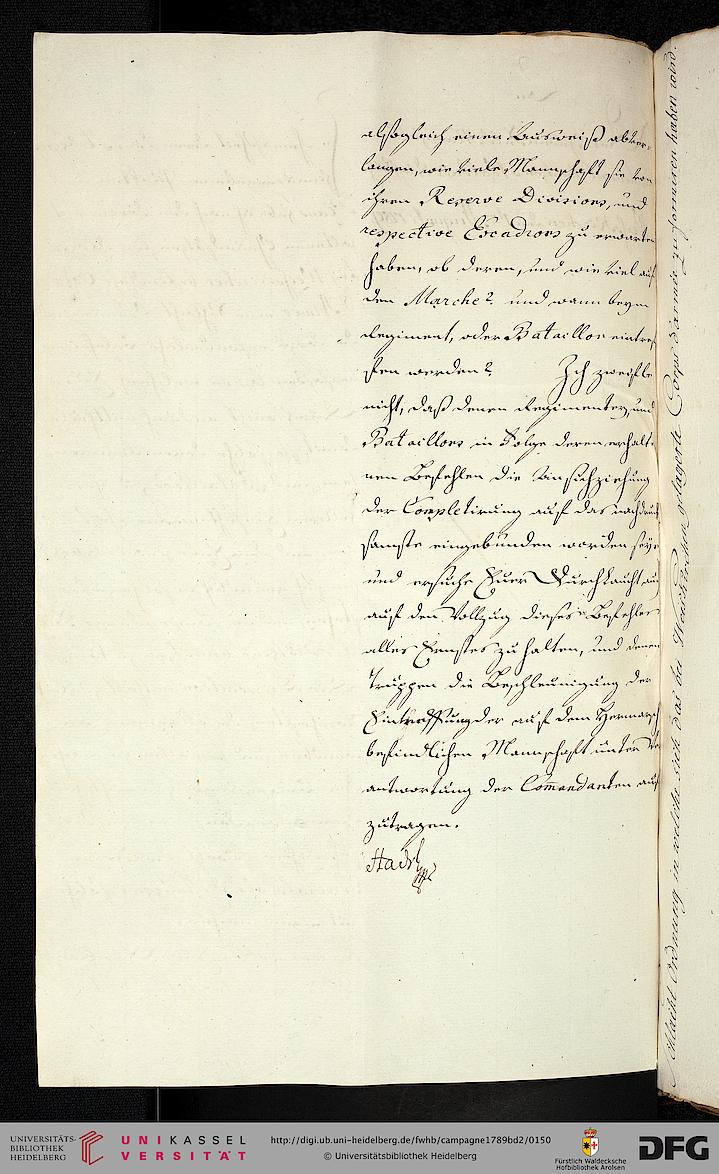 alsogleich einen Ausweiß abver-
langen, wie viele Mannschaft sie von
ihren Reserve Divisions, und
respective Escadrons zu erwarten
haben, ob deren, und wie viel auf
den Marche? und wann beym
Regiment, oder Bataillon eintref-
fen werden? Ich zweifle
nicht, daß denen Regimentern, und
Bataillons in Folge deren erhalte-
nen Befehlen die Ansichziehung
der Completirung auf das nachdruck-
samste eingebunden worden seye
und ersuche Euer Durchlaucht
auf den Vollzug dieses Befehles
alles Ernstes zu halten, und denen
Truppen die Beschleunigung der
Eintreffung der auf dem Hermarsch
befindlichen Mannschaft unter Ver-
antwortung der Commandanten auf
zutragen.
Hadik
Schlacht Ordnung in welche sich das bei Weiskirchen gelagerte Corps d'armée zu formiren haben wird.
UNIVERSITÄTS-
BIBLIOTHEK
HEIDELBERG
UNIKASSEL
VERSITÄT
http://digi.ub.uni-heidelberg.de/fwhb/campagne1789bd2/0150
© Universitätsbibliothek Heidelberg
Fürstlich Waldecksche
Hofbibliothek Arolsen
DFG